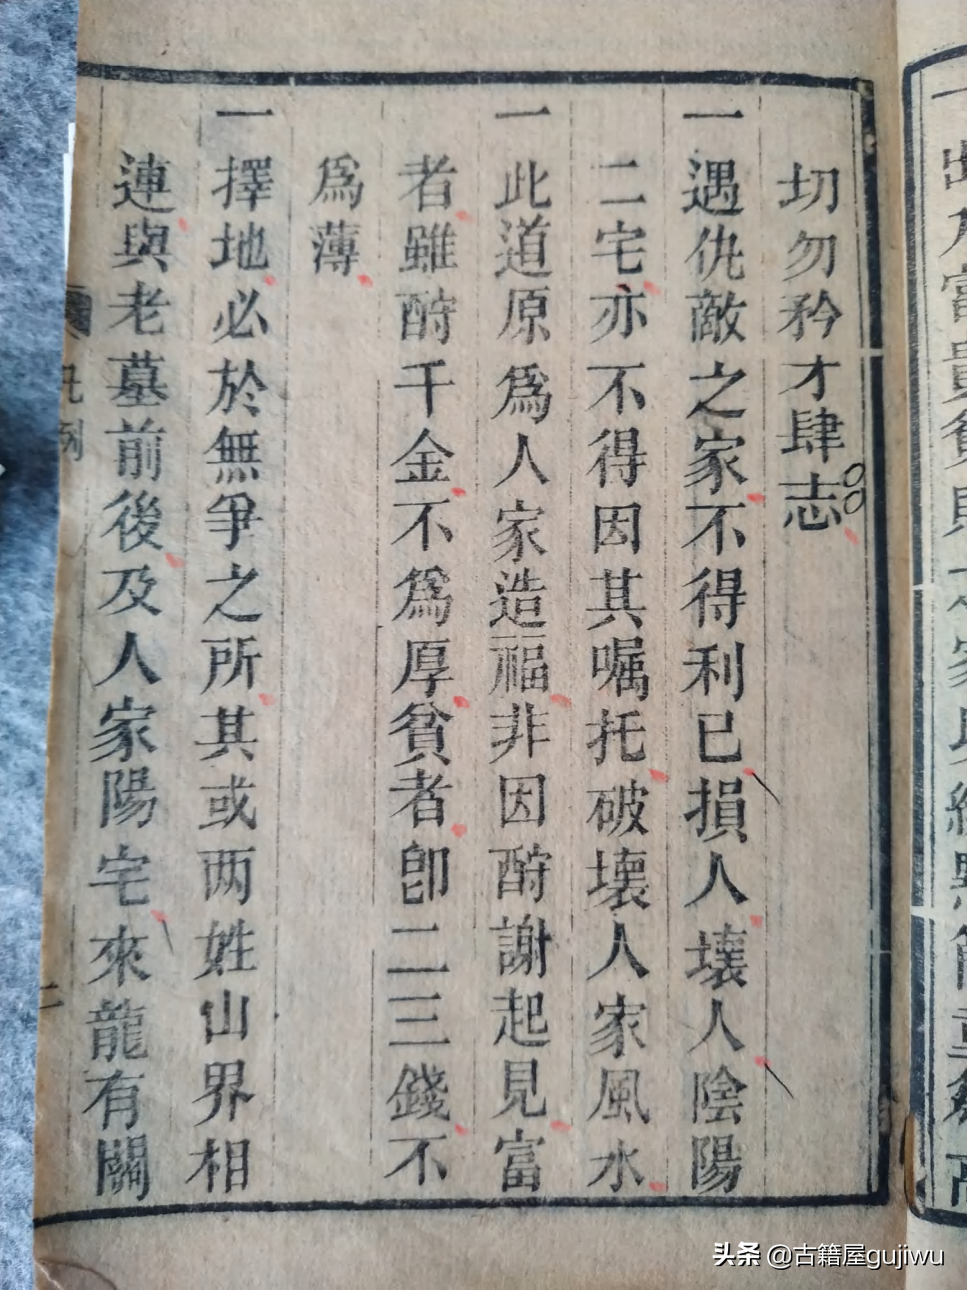 切勿矜才肆志
一遇仇敵之家不得利已損人壞人陰陽
二宅亦不得因其嘱托破壞人家風水
一此道原爲人家造福非因酧謝起見富
者雖酧千金不爲厚貧者卽二三錢不
爲薄
一擇地必於無爭之所其或两姓山界相
連與老墓前後及人家陽宅來龍有關
二
头条 @古籍屋gujiwu